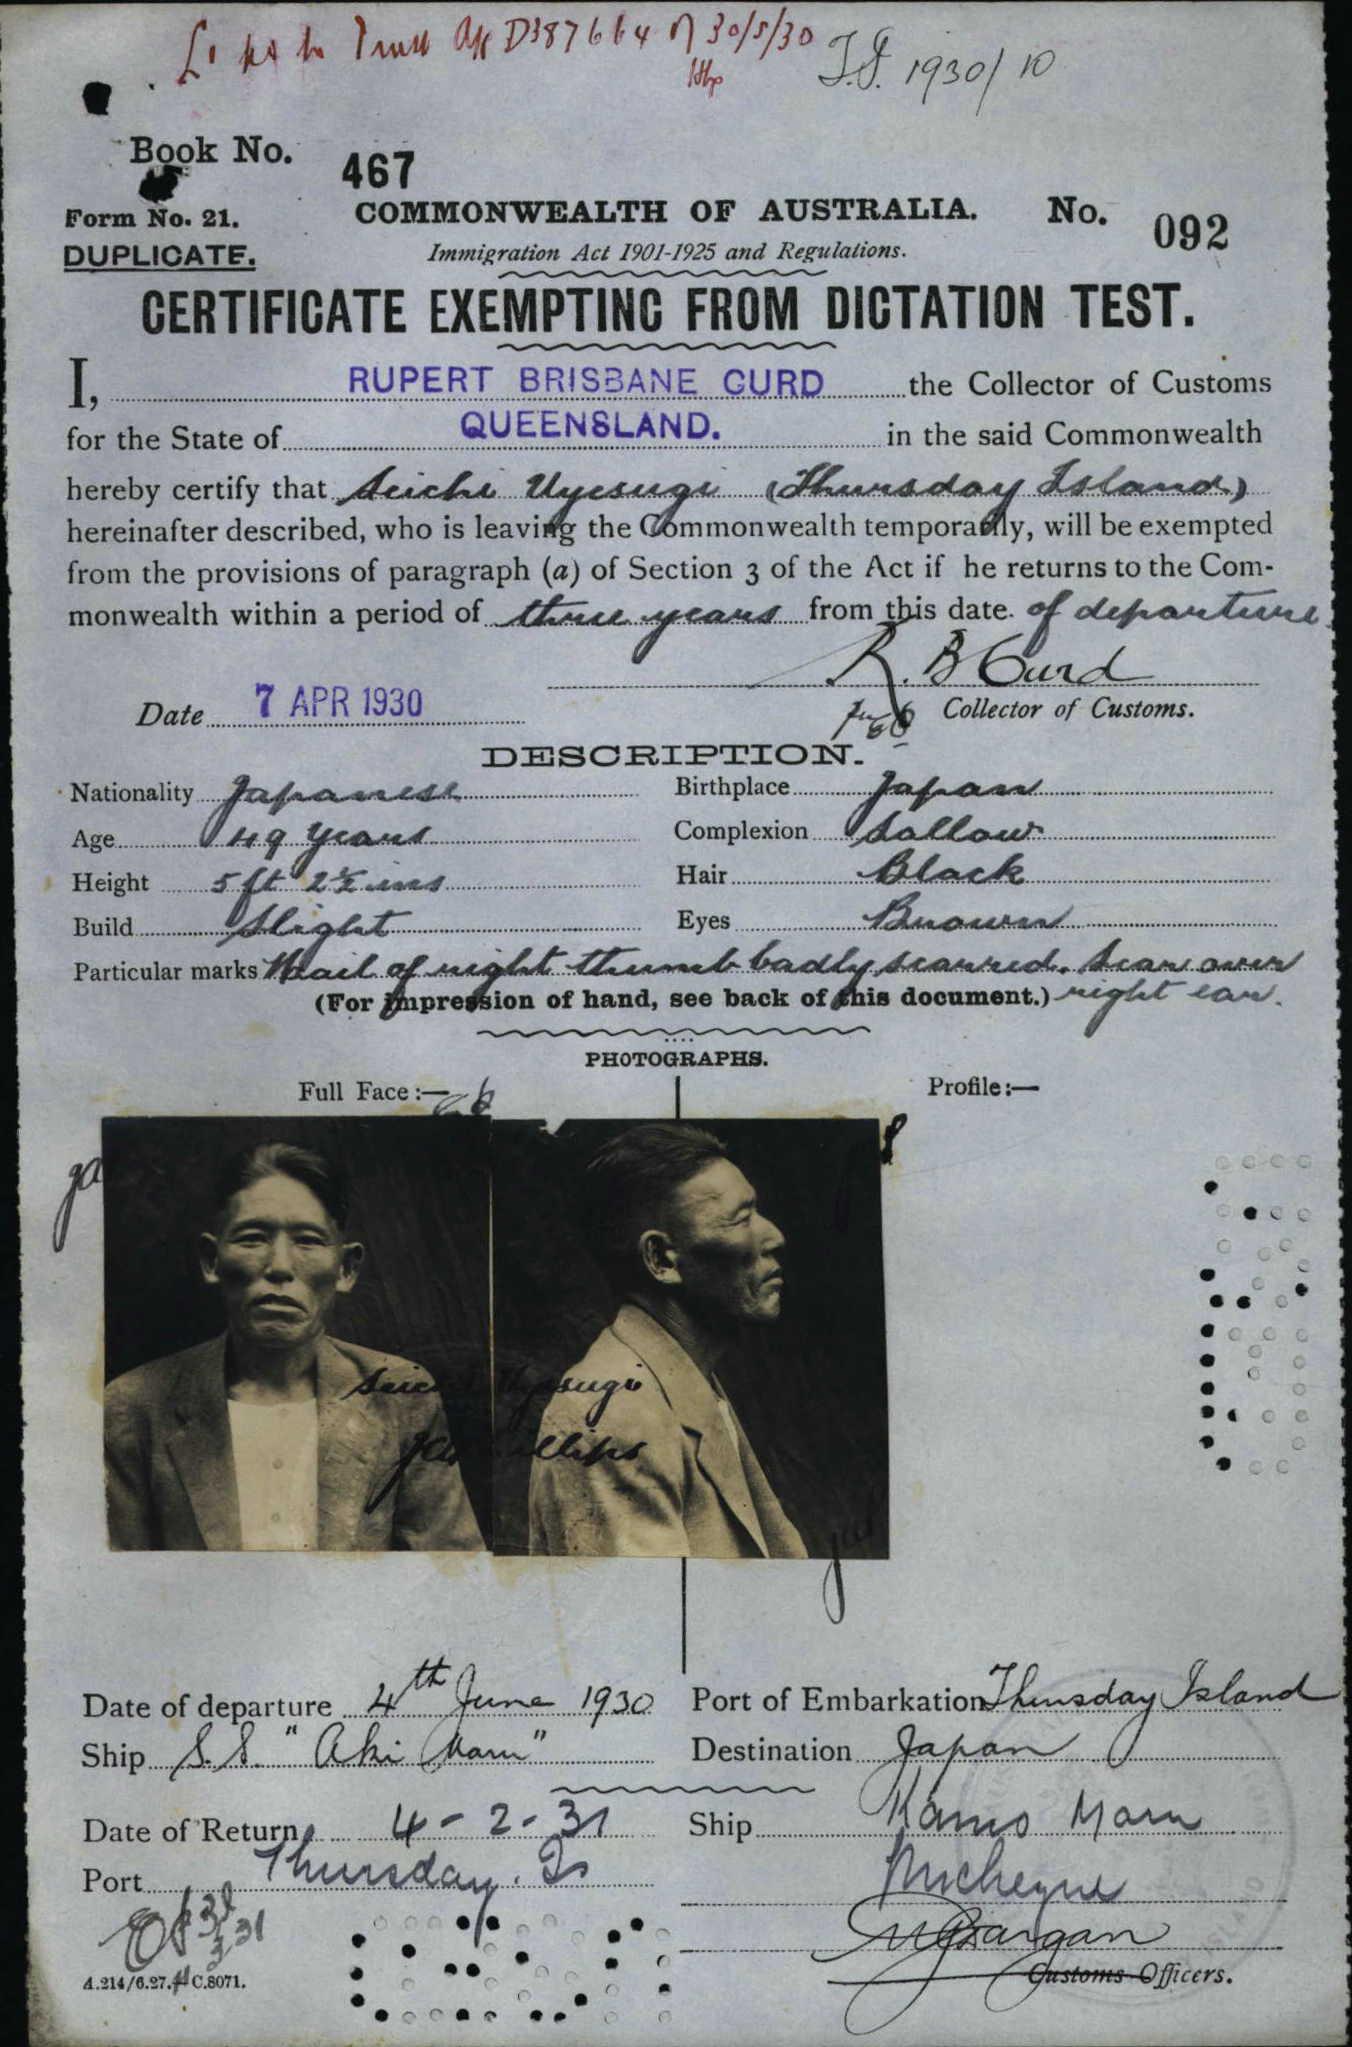 D387664 of 30/5/30
T.I. 1930/10
Book No. 467
Form No. 21. COMMONWEALTH OF AUSTRALIA. No. 092
DUPLICATE. Immigration Act 1901-1925 and Regulations.
CERTIFICATE EXEMPTING FROM DICTATION TEST.
I, RUPERT BRISBANE CURD the Collector of Customs
for the State of QUEENSLAND. in the said Commonwealth
hereby certify that Seichi Uyesugi (Thursday Island)
hereinafter described, who is leaving the Commonwealth temporarily, will be exempted
from the provisions of paragraph (a) of Section 3 of the Act if he returns to the Com-
monwealth within a period of three years from this date of departure
R. B Curd
Date 7 APR 1930 Collector of Customs.
DESCRIPTION.
Nationality Japanese Birthplace Japan
Age 49 years Complexion Sallow
Height 5 ft 2½ ins Hair Black
Build Slight Eyes Brown
Particular marks Nail of right thumb badly scarred. Scar over
(For impression of hand, see back of this document.) right ear.
PHOTOGRAPHS.
Full Face:— Profile:—
Seichi Uyesugi
Date of departure 4th June 1930 Port of Embarkation Thursday Island
Ship S.S. "Aki Maru" Destination Japan
Date of Return 4-2-31 Ship Kamo Maru
Port Thursday Is
Customs Officers.
A.214/6.27. C.8071.